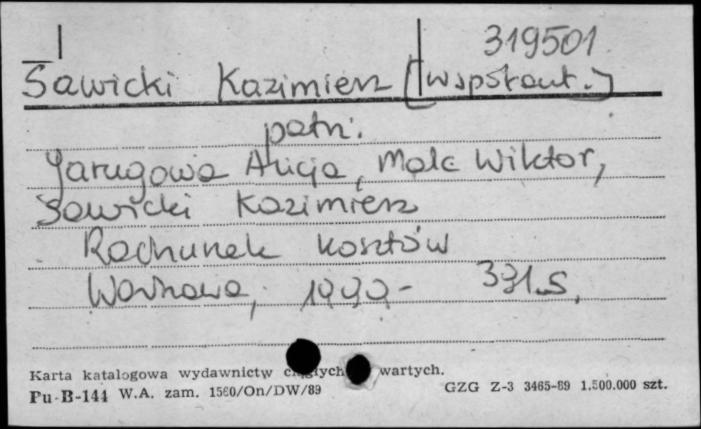 319501
Sawicki Kazimierz [współaut.]
patrz:
Jarugowa Alicja, Malc Wiktor,
Sawicki Kazimierz
Rachunek kosztów
Warszawa, 1990.- 331 s.
Karta katalogowa wydawnictw wartych.
Pu-B-144 W.A. zam. 1560/On/DW/89 GZG Z-3 3465-89 1.500.000 szt.